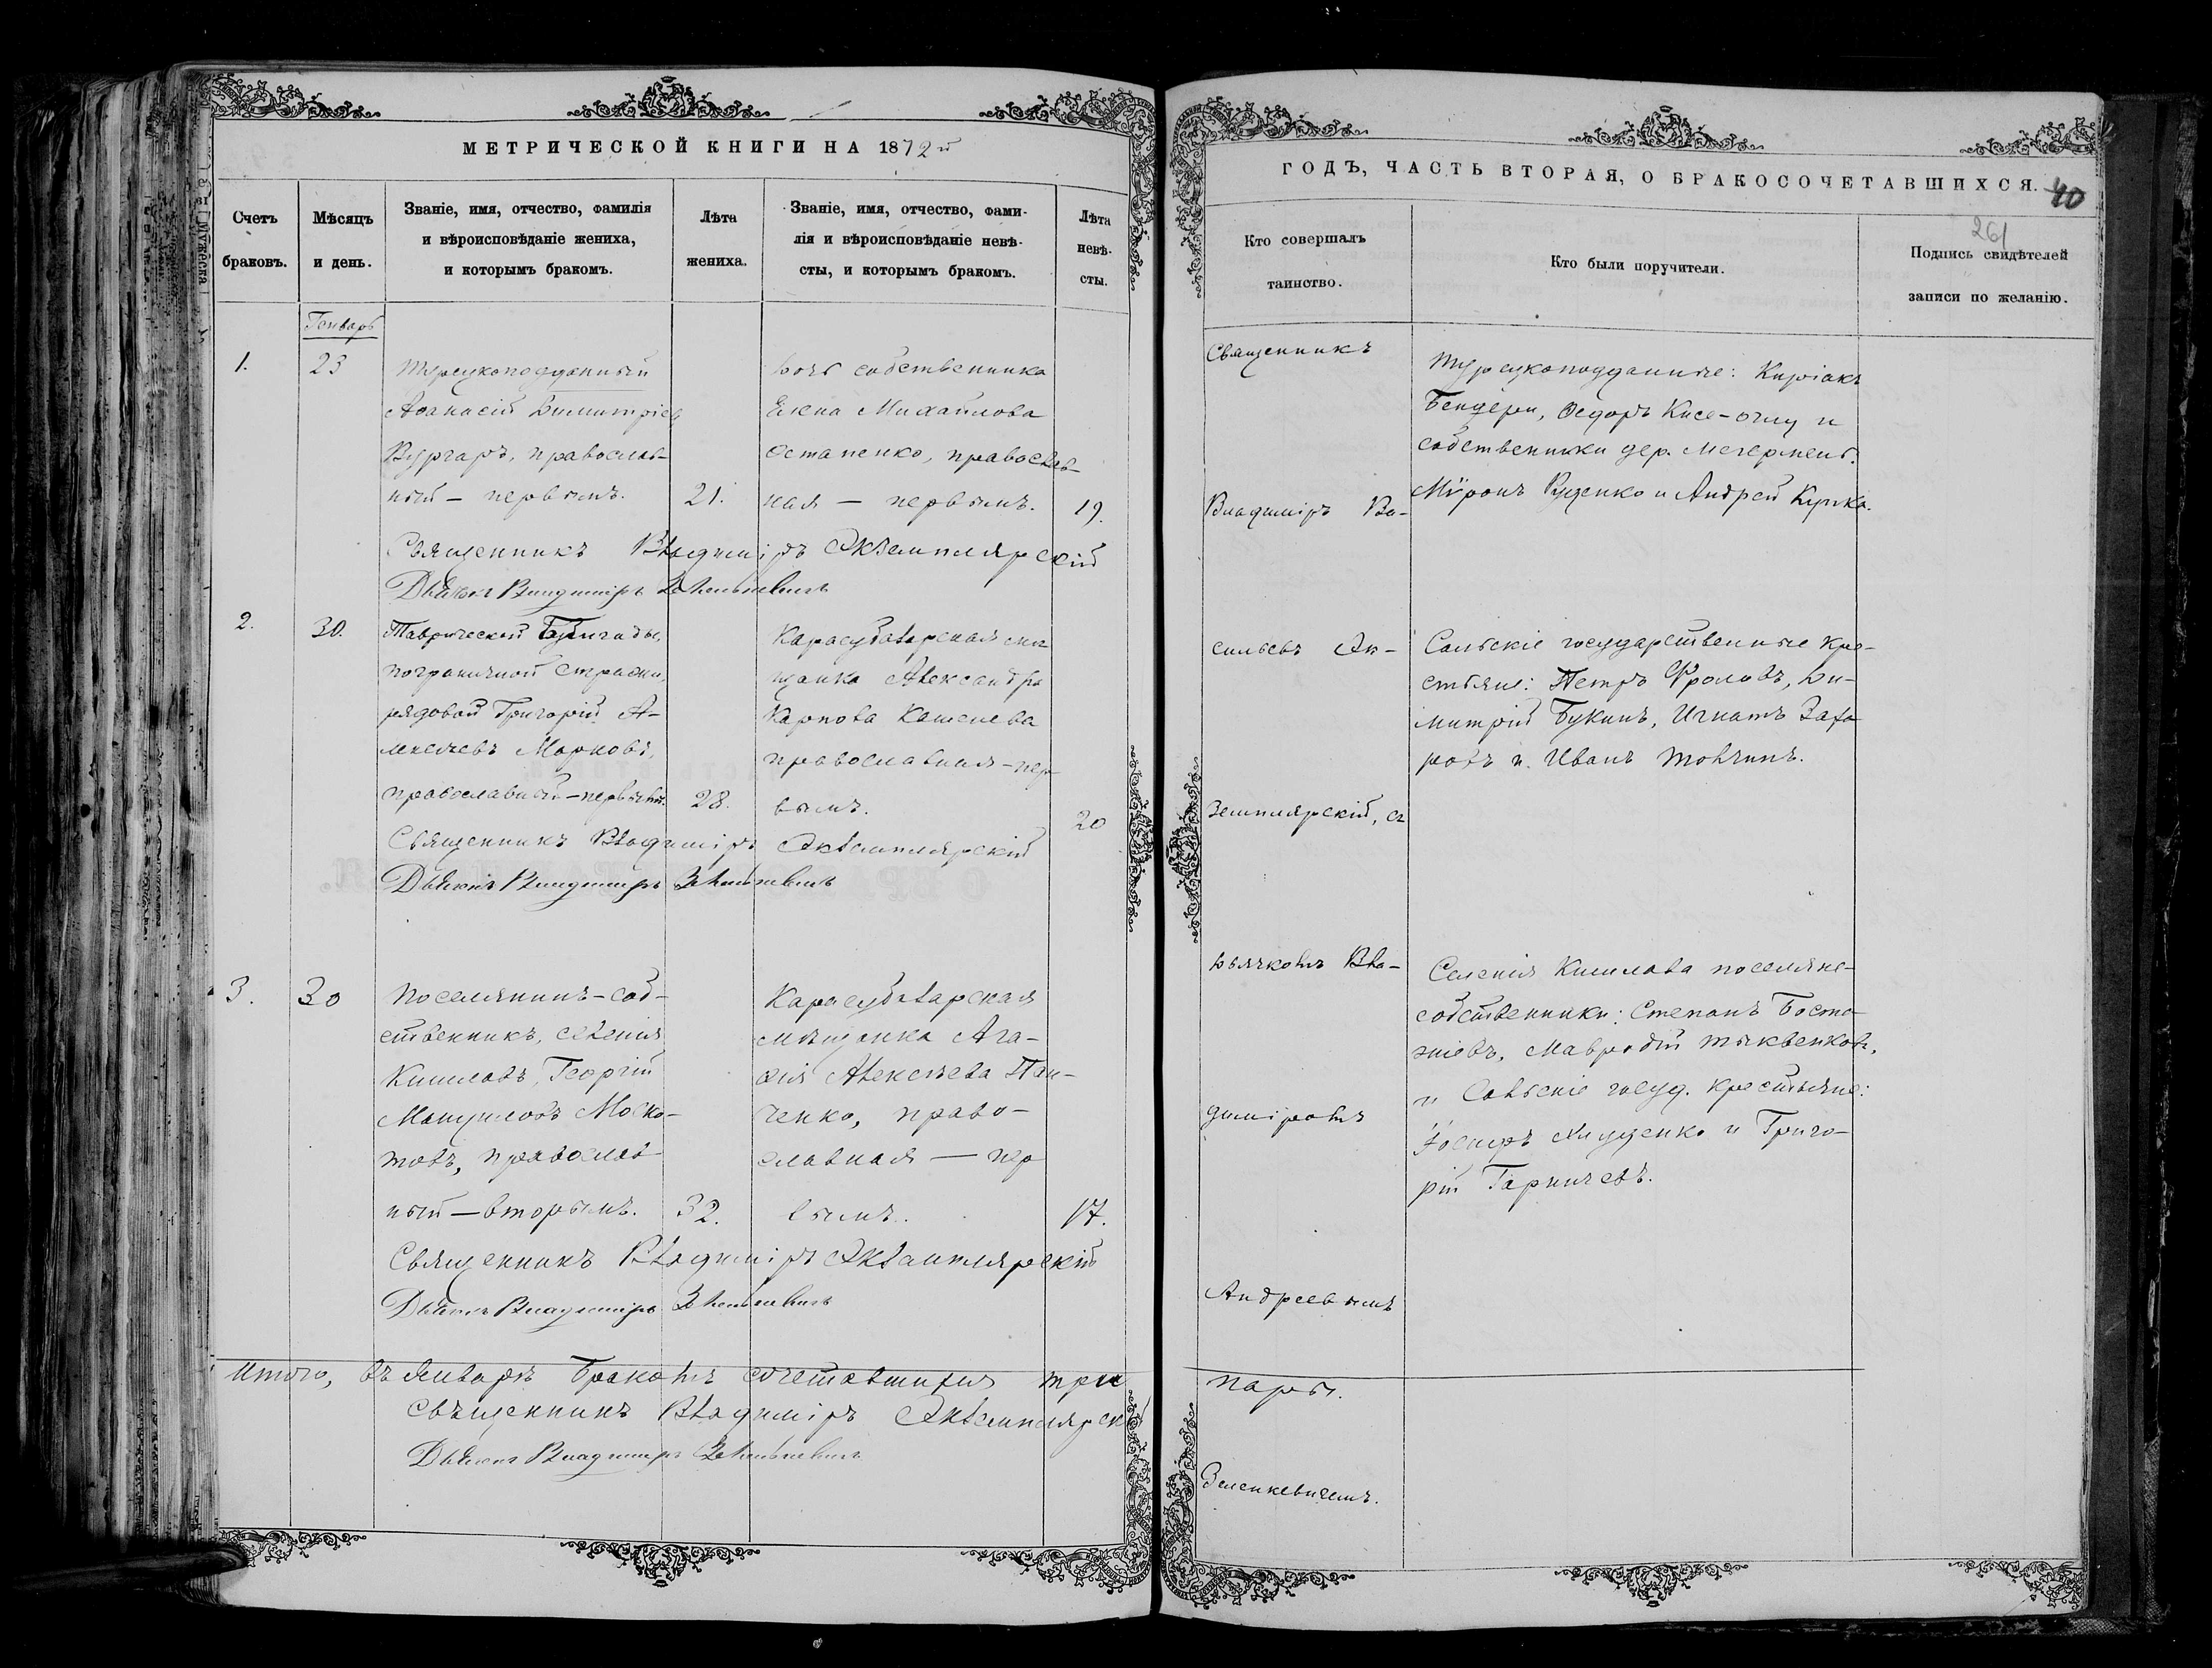 МЕТРИЧЕСКОЙ КНИГИ НА 1872й
Счетъ браковъ.
Мѣсяцъ и день.
Званіе, имя, отчество, фамилія
и вѣроисповѣданіе жениха,
и которымъ бракомъ.
Лѣта жениха.
Званіе, имя, отчество, фами-
лія и вѣроисповѣданіе невѣ-
сты, и которымъ бракомъ.
Лѣта невѣ-
сты.
Генварь
1.
23
Турецкоподданный
Аѳанасій Димитріевъ
Вургаръ, православ-
ный — первымъ.
21.
Дочь собственника
Елена Михайлова
Остапенко, православ-
ная — первымъ.
19.
Священникъ Владиміръ Экземплярскій
Дьячекъ Владиміръ Зеленкевичъ
2.
30.
Таврической Бригады,
пограничной стражи,
рядовой Григорій А-
лексѣевъ Марковъ,
православный — первымъ.
28.
Карасубазарская мѣ-
щанка Александра
Карпова Кашелева
православная — пер-
вымъ.
20
Священникъ Владиміръ Экземплярскій
Дьячекъ Владиміръ Зеленкевичъ
3.
30
Поселянинъ-соб-
ственникъ, селенія
Кишлавъ, Георгій
Мануиловъ Моско-
товъ, православ-
ный — вторымъ.
32.
Карасубазарская
мѣщанка Ага-
ѳія Алексѣева Пан-
ченко, право-
славная — пер
вымъ.
17.
Священникъ Владиміръ Экземплярскій
Дьячекъ Владиміръ Зеленкевичъ
Итого, въ Январѣ бракомъ сочетавшихся три
Священникъ Владиміръ Экземплярскій
Дьячекъ Владиміръ Зеленкевичъ
ГОДЪ, ЧАСТЬ ВТОРАЯ, О БРАКОСОЧЕТАВШИХСЯ.
40
261
Кто совершалъ
таинство.
Кто были поручители.
Подпись свидѣтелей
записи по желанію.
Священникъ
Владиміръ Ва-
сильевъ Эк-
земплярскій, съ
дьячкомъ Вла-
диміромъ
Андреевымъ
Зеленкевичемъ.
Турецкоподданные: Киріакъ
Бендери, Ѳедоръ Кисе-оглу и
собственники дер.
Миронъ Руденко и Андрей
Сальскіе государственные кре-
стьяне: Петръ Фроловъ, Ди-
митрій Букинъ, Игнатъ Заха-
ровъ и Иванъ Товчинъ.
Селенія Кишлава поселяне-
собственники: Степанъ Боста-
нжіевъ, Маврадій
и Сальскіе госуд. крестьяне:
Іосифъ и Григо-
рій
пары.